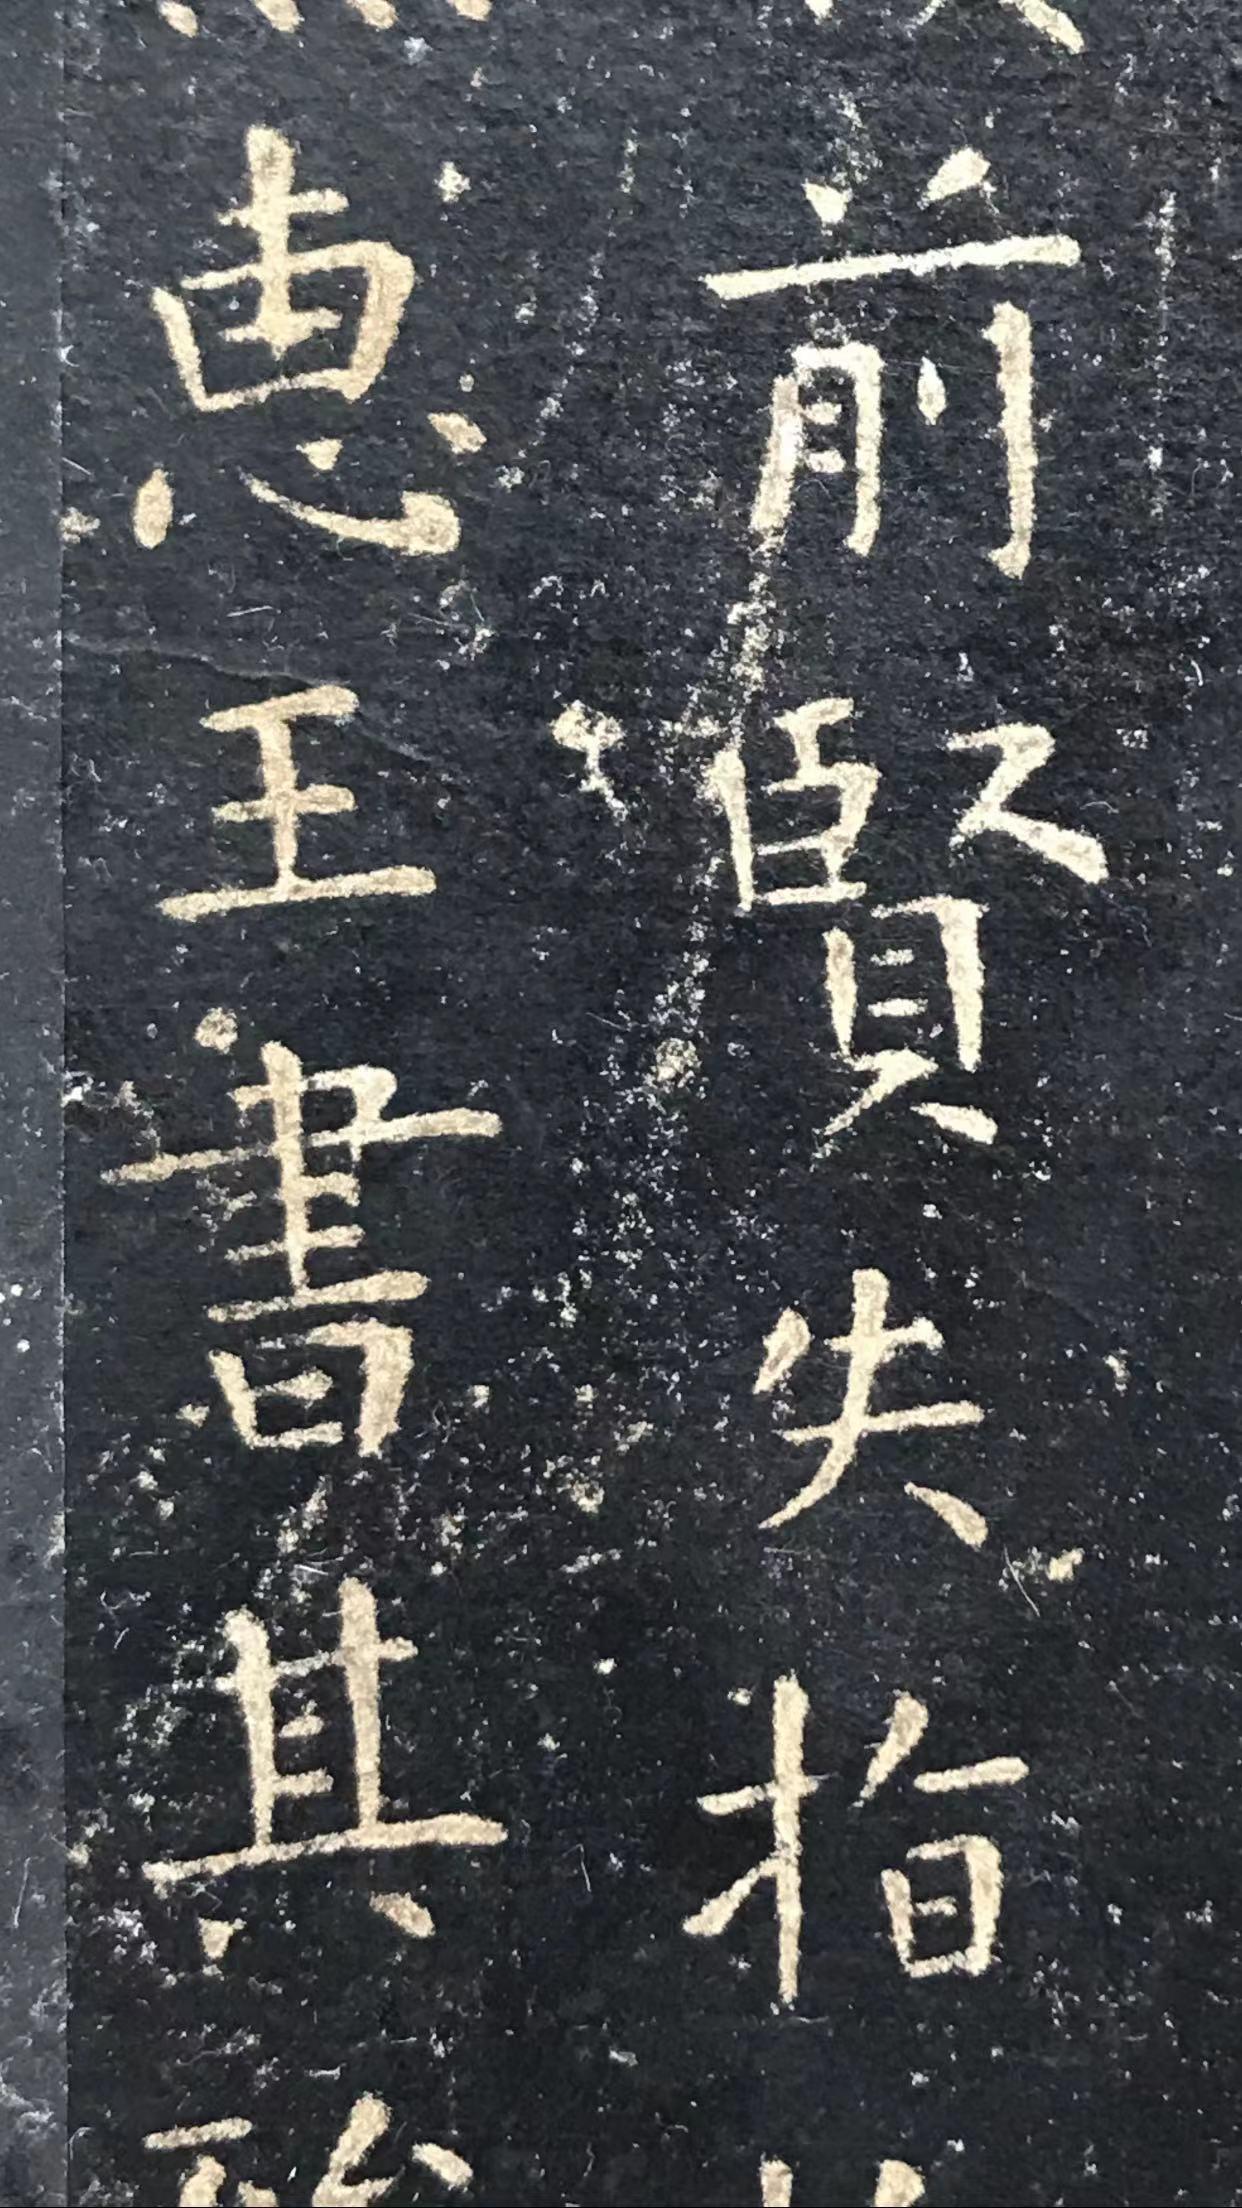 前賢失指
惠王書其